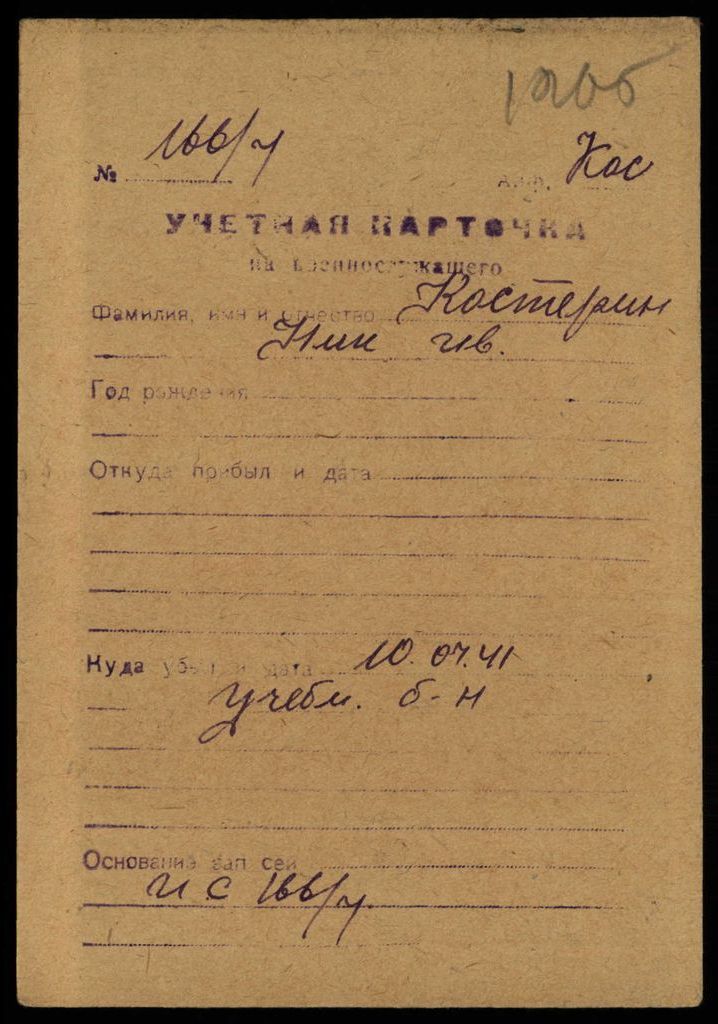 1206
№ 166/у
Алф. Кос
УЧЕТНАЯ КАРТОЧКА
на военнослужащего
Фамилия, имя и отчество Костерин
Ник Ив.
Год рождения
Откуда прибыл и дата
Куда убыл и дата 10.07.41
учебн. б-н
Основание зап сей
и с 166/у